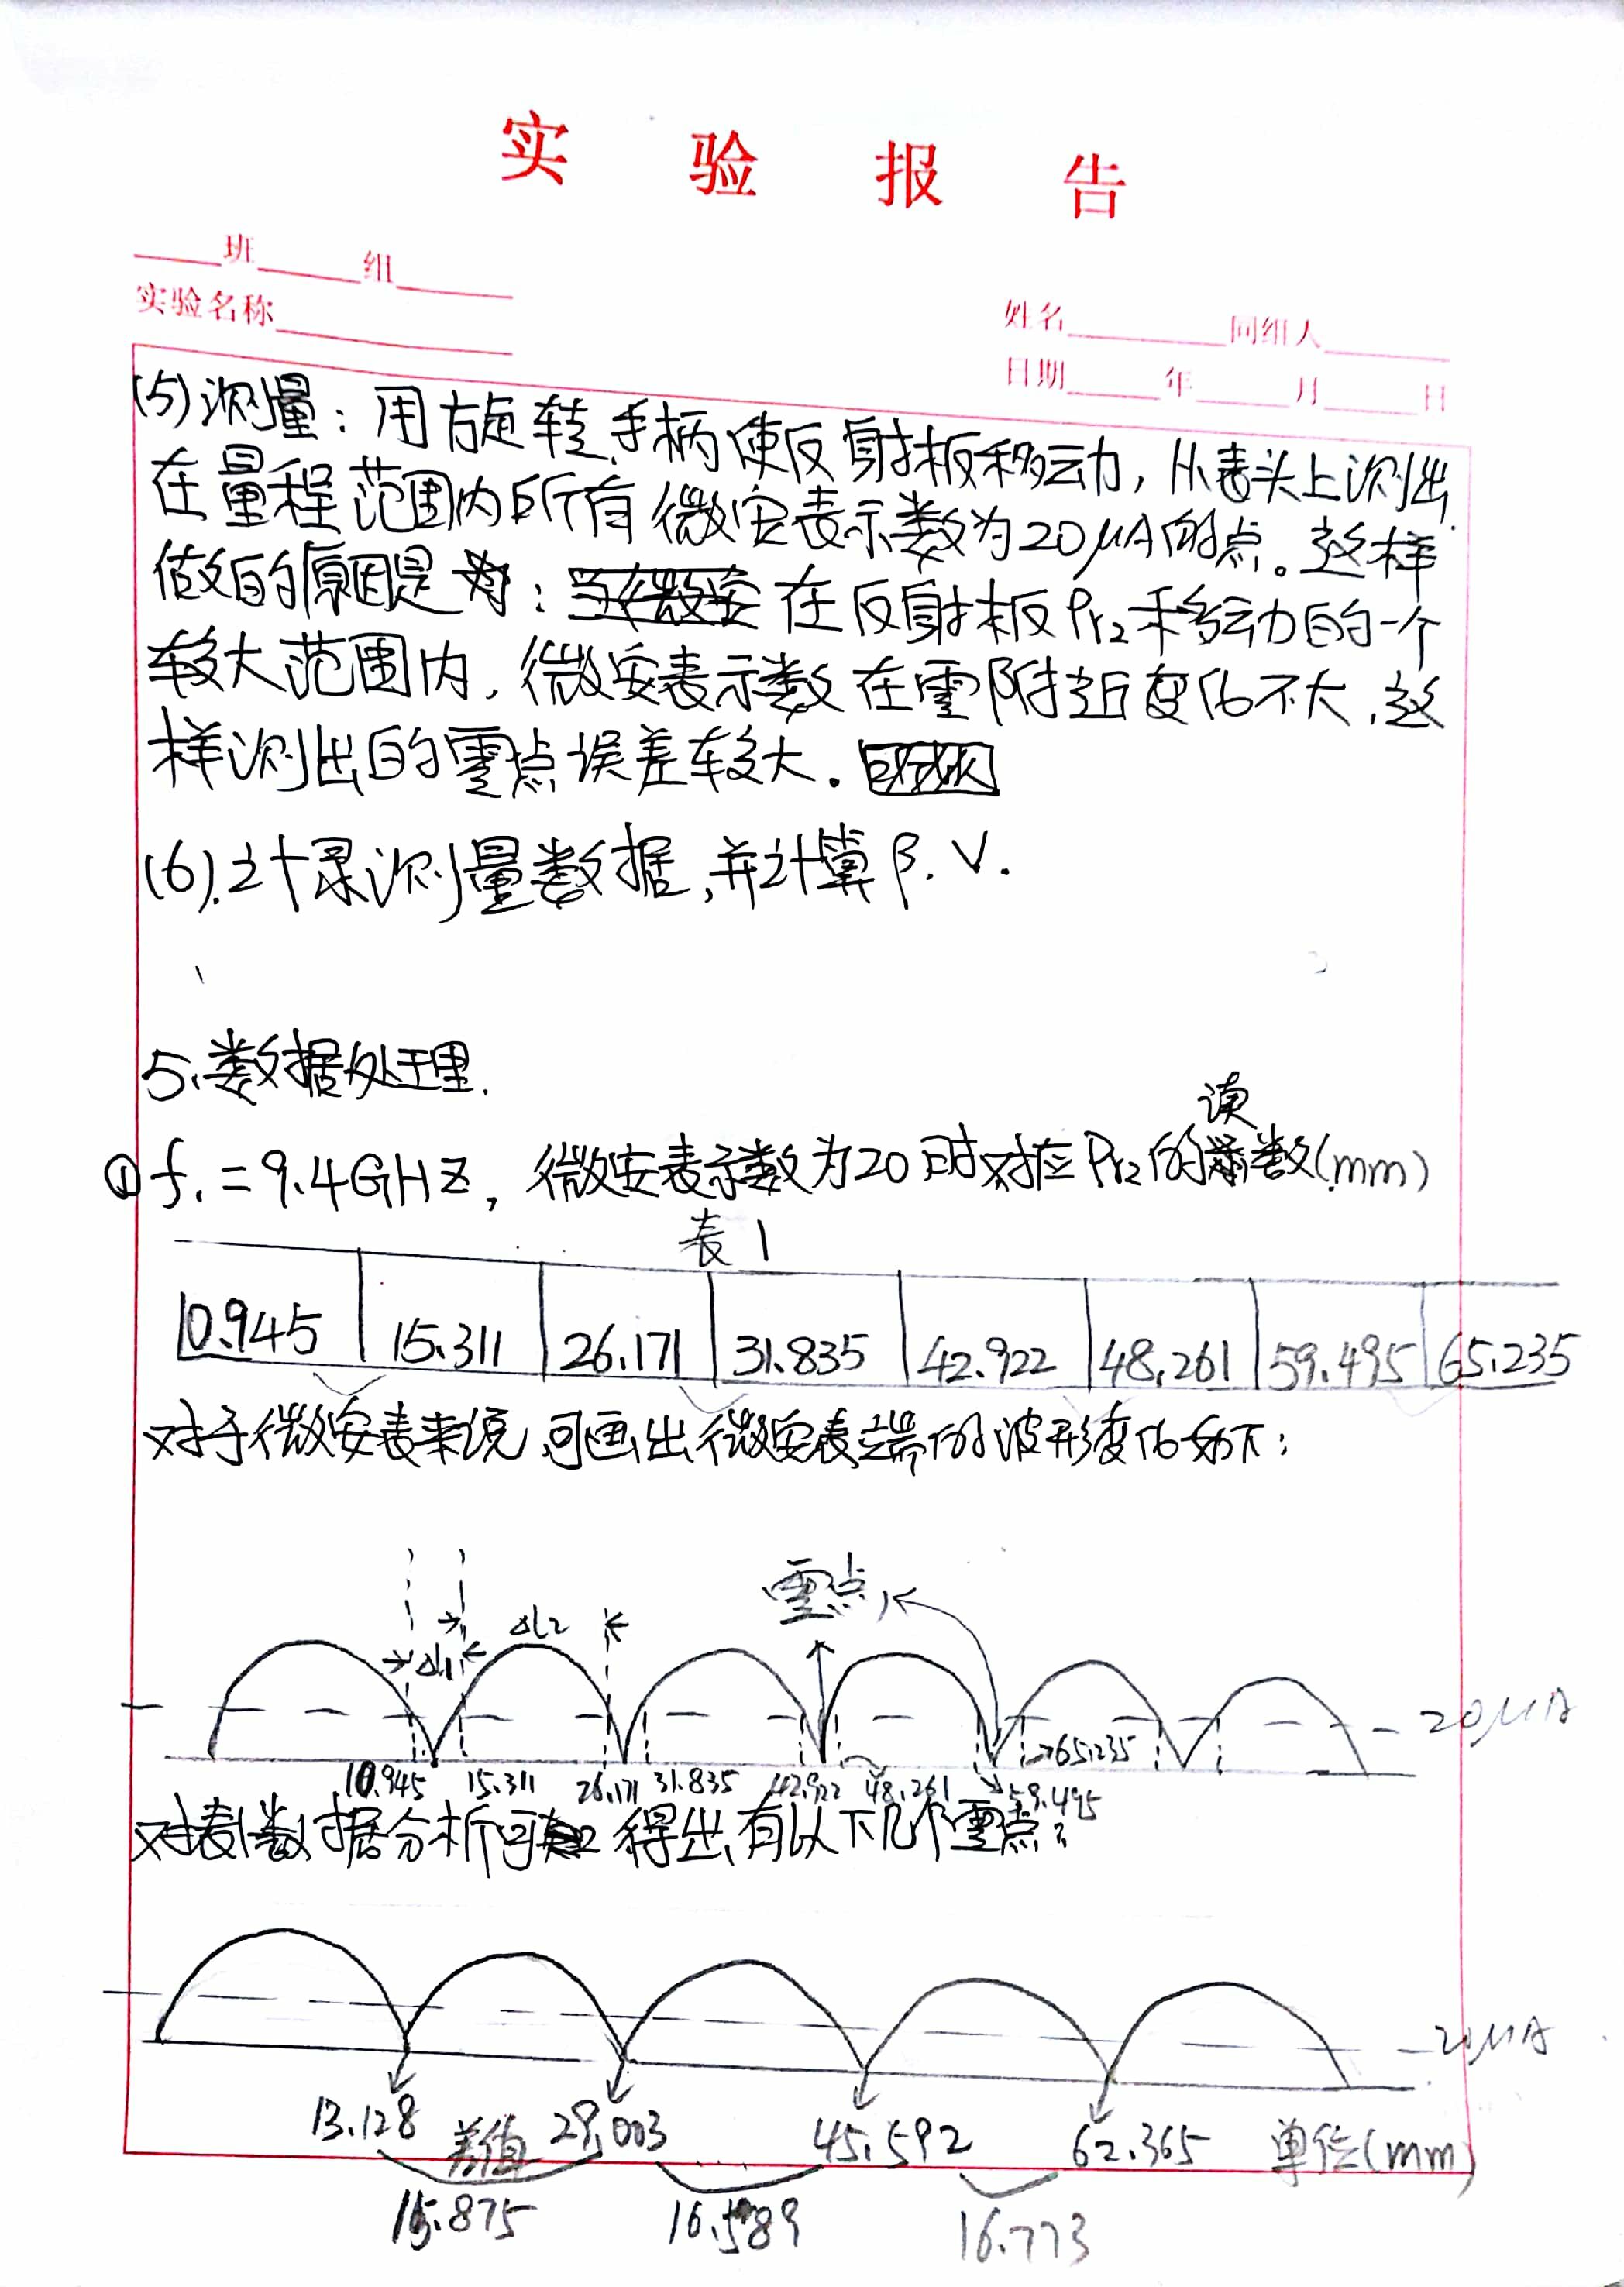 实验报告
班 组
实验名称
姓名 同组人
日期 年 月 日
(5)测量：用旋转手柄使反射板移动，从表头上测出
在量程范围内所有微安表示数为20μA的点。这样
做的原因是：在反射板Pr2移动的一个
较大范围内，微安表示数在零附近变化不大，这
样测出的零点误差较大。
(6).记录测量数据，并计算β.V.
5、数据处理.
读
① f₁=9.4GHZ，微安表示数为20时对应Pr2的数(mm)
表1
10.945 15.311 26.171 31.835 42.922 48.261 59.495 65.235
对于微安表来说，可画出微安表端的波形变化如下：
零点
Δl1 Δl2
20μA
10.945 15.311 26.171 31.835 42.922 48.261 59.495 65.235
对表1数据分析可得出，有以下几个零点：
20μA
13.128 29.003 45.592 62.365 单位(mm)
差值
15.875 16.589 16.773